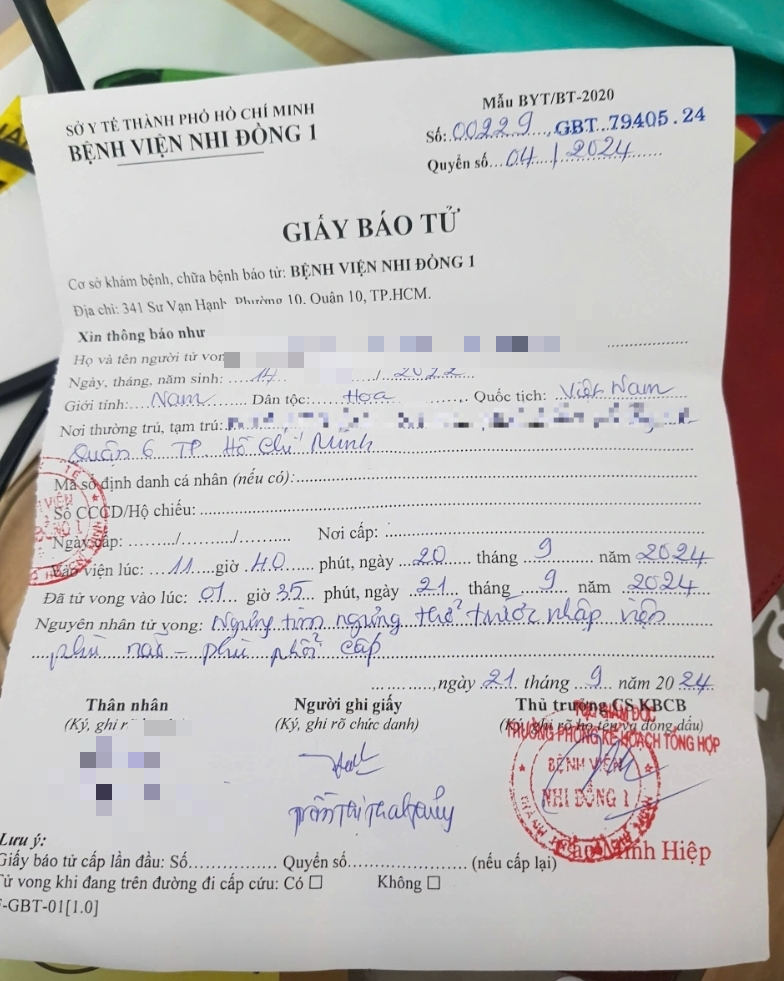 SỞ Y TẾ THÀNH PHỐ HỒ CHÍ MINH
BỆNH VIỆN NHI ĐỒNG 1
Mẫu BYT/BT-2020
Số: 00229, GBT 79405.24
Quyển số 04 / 2024
GIẤY BÁO TỬ
Cơ sở khám bệnh, chữa bệnh báo tử: BỆNH VIỆN NHI ĐỒNG 1
Địa chỉ: 341 Sư Vạn Hạnh Phường 10, Quận 10, TP.HCM.
Xin thông báo như
Họ và tên người tử von
Ngày, tháng, năm sinh: 14 / 2022
Giới tính: Nam Dân tộc: Hoa Quốc tịch: Việt Nam
Nơi thường trú, tạm trú:
Quận 6 TP. Hồ Chí Minh
Mã số định danh cá nhân (nếu có):
Số CCCD/Hộ chiếu:
Ngày cấp: ......../......../......... Nơi cấp:
viện lúc: 11 giờ 40 phút, ngày 20 tháng 9 năm 2024
Đã tử vong vào lúc: 01 giờ 35 phút, ngày 21 tháng 9 năm 2024
Nguyên nhân tử vong: Ngưng tim ngưng thở trước nhập viện
phù não - phù phổi cấp
, ngày 21 tháng 9 năm 2024
Thân nhân Người ghi giấy Thủ trưởng CS KBCB
(Ký, ghi r (Ký, ghi rõ chức danh) (Ký, ghi rõ họ tên và đóng dấu)
TRƯỞNG PHÒNG KẾ HOẠCH TỔNG HỢP
BỆNH VIỆN
NHI ĐỒNG 1
Trần Thị
Minh Hiệp
Lưu ý:
Giấy báo tử cấp lần đầu: Số Quyển số (nếu cấp lại)
Tử vong khi đang trên đường đi cấp cứu: Có ☐ Không ☐
-GBT-01[1.0]